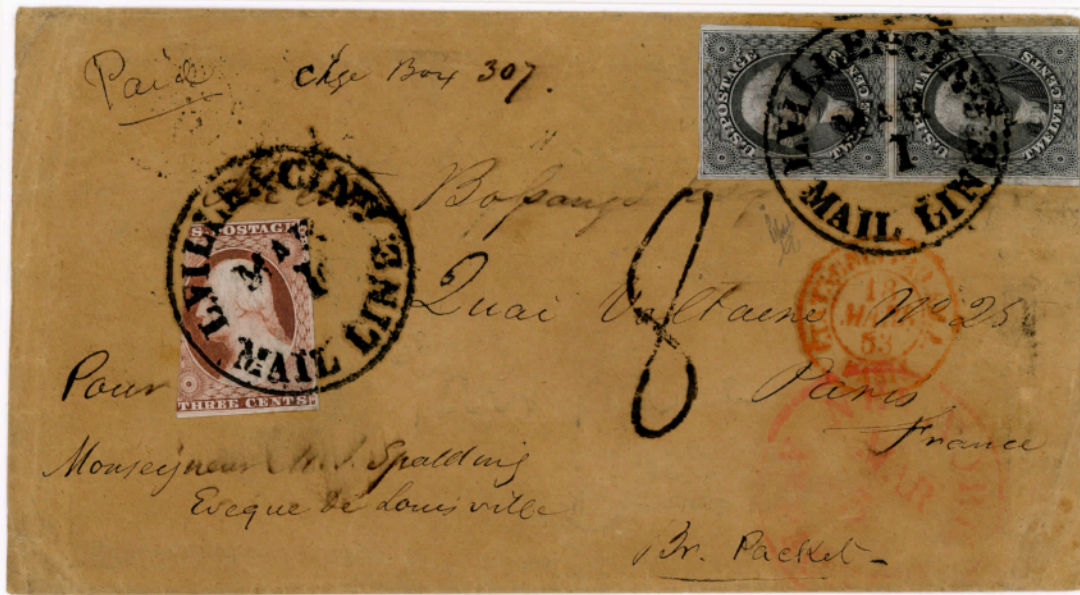 Paid Chge Box 307.
U.S. POSTAGE TWELVE CENTS
U.S. POSTAGE TWELVE CENTS
LVILLE & CIN. MAIL LINE
MAR 1
Bossange
LVILLE & CIN. MAIL LINE
MAR 1
U.S. POSTAGE
THREE CENTS
8
Quai Voltaire No 25
18 MARS 53
Paris
France
NEW YORK
MAR
Pour
Monseigneur M. J. Spalding
Eveque de Louisville
Br. Packet